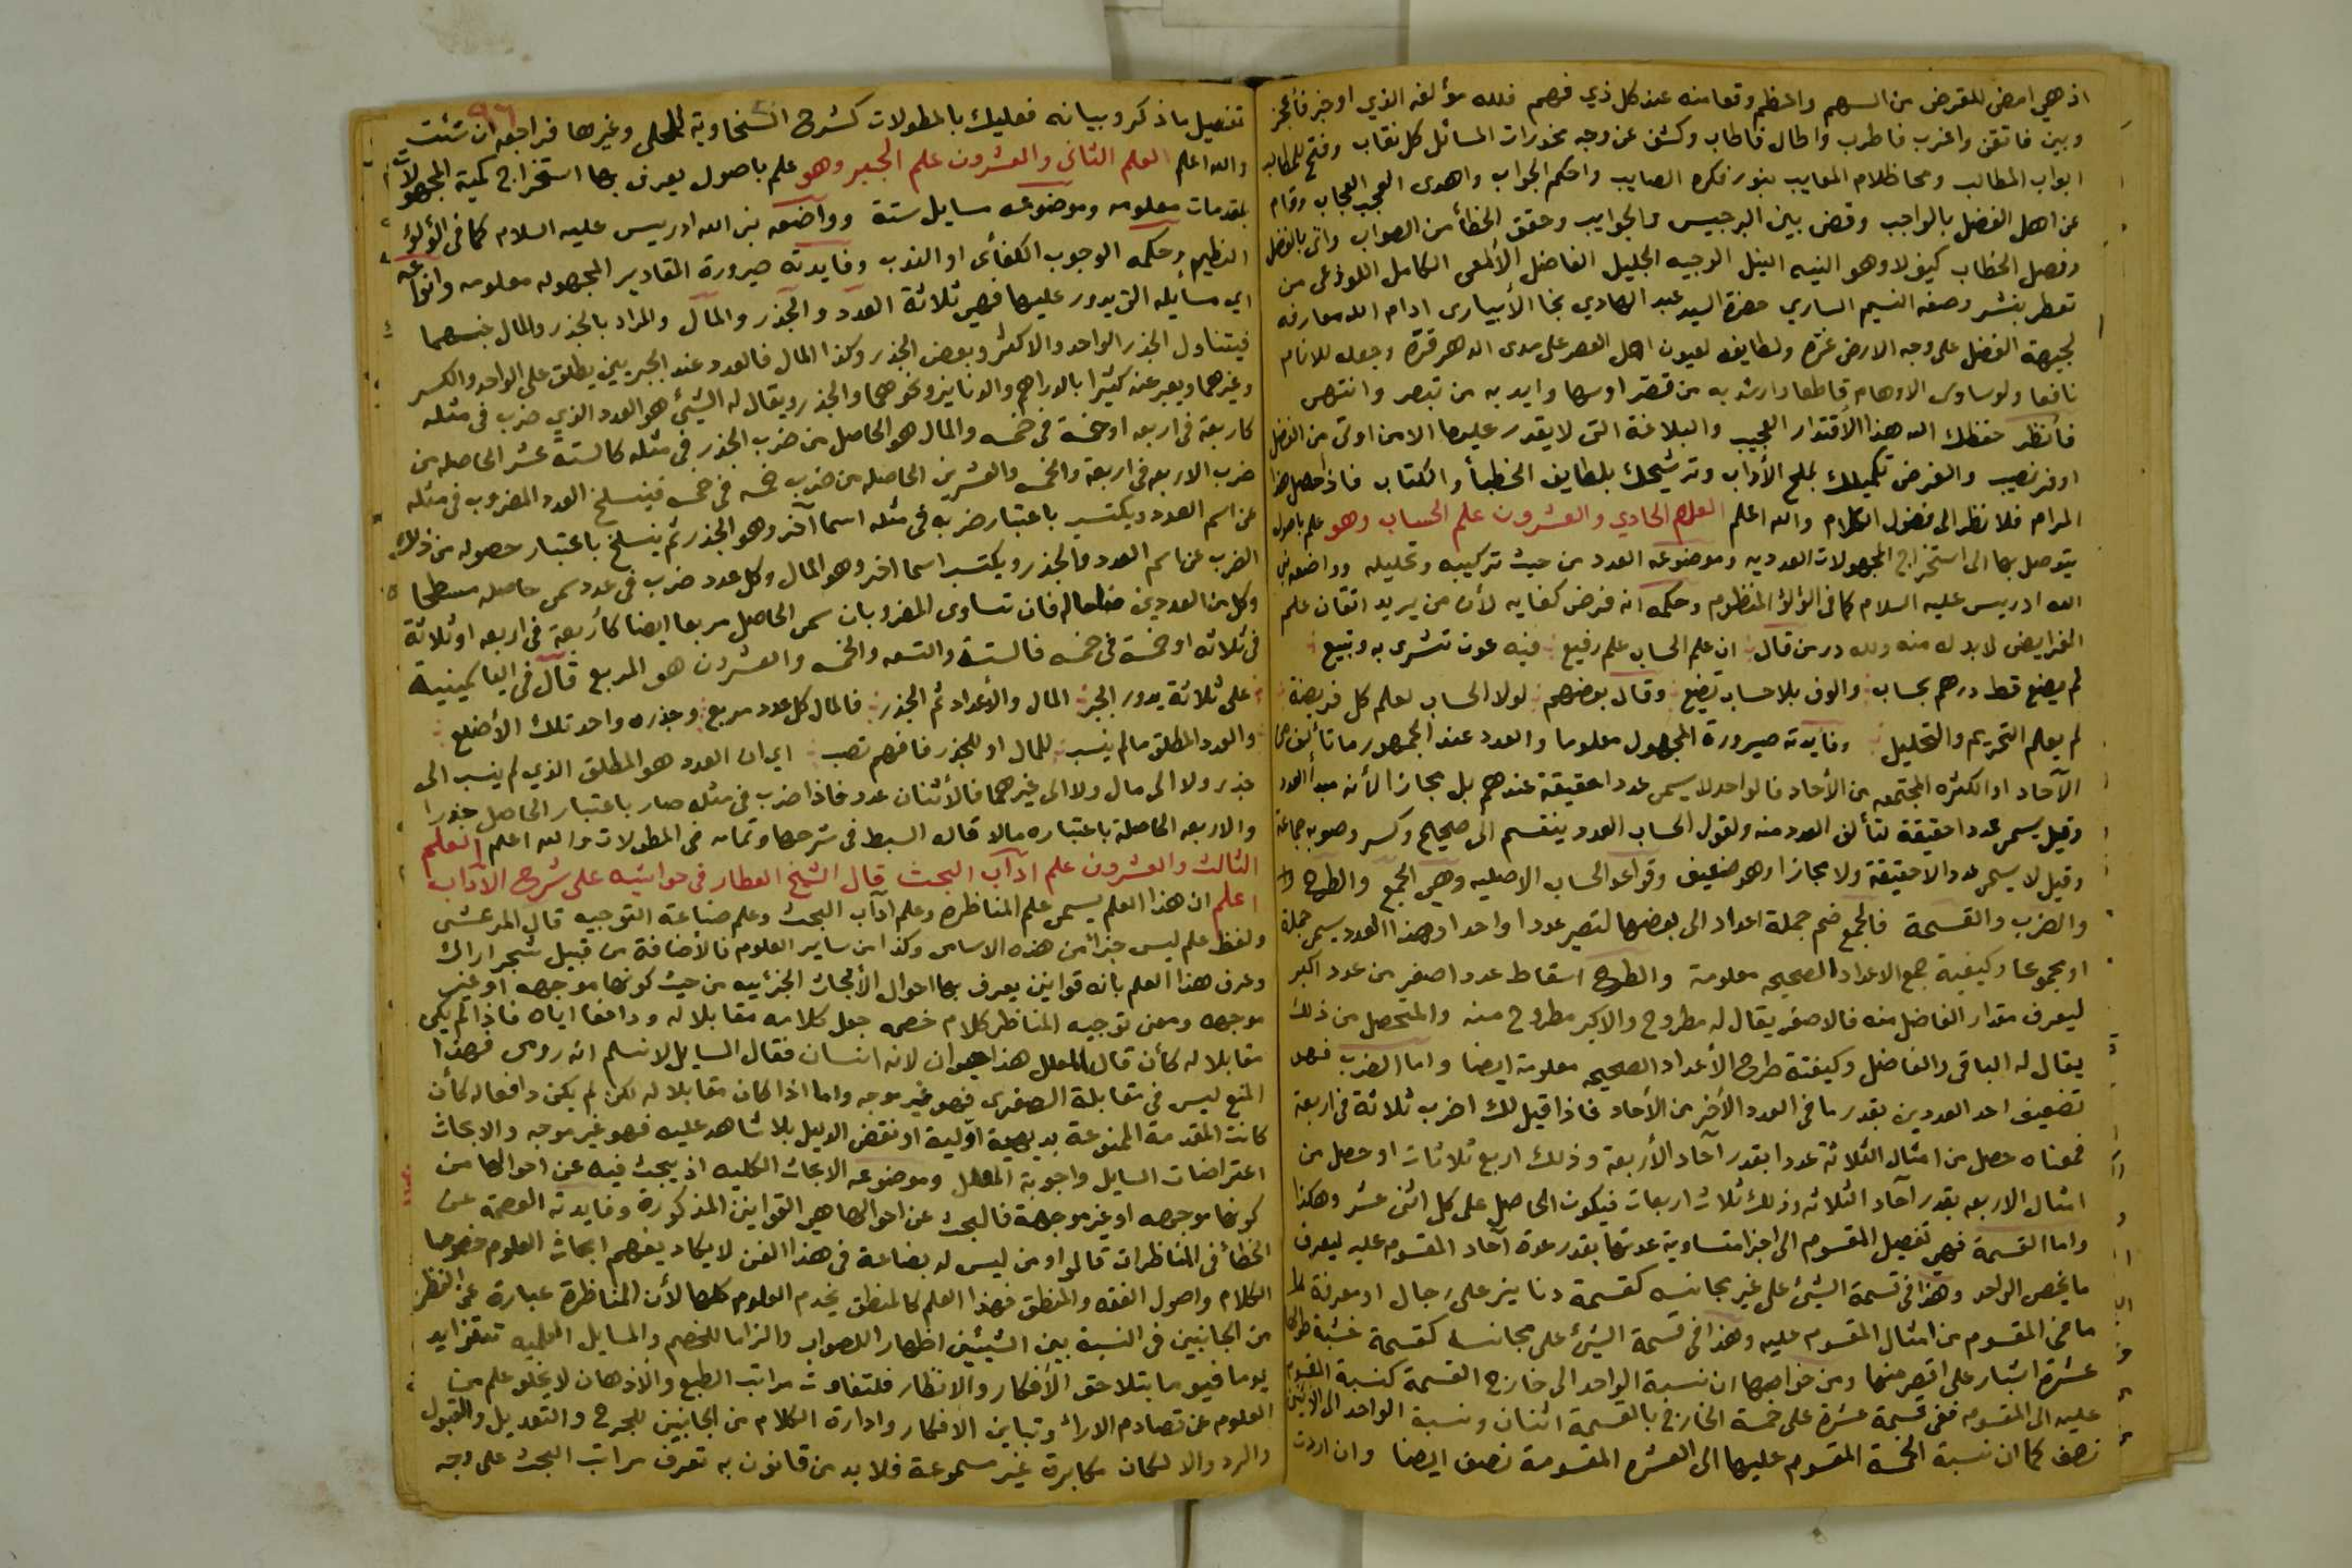 اذ هي امض للمقرض من السهم واعظم وقعا منه عند كل ذي فهم فلله مؤلفه الذي اوجز فاعجز
وبين فاتقن واغرب فاطرب واطال فاطاب وكشف عن وجه مخدرات المسائل كل نقاب وفتح للمطالب
ابواب المطالب ومحا ظلام المعايب بنور فكره الصايب واحكم الجواب واهدى العجب العجاب وقام
عن اهل الفضل بالواجب وقضى بين البرجيس والجوايب وحقق الخطأ من الصواب واتى بالفضل
وفصل الخطاب كيف لا وهو النبيه النبيل الوجيه الجليل الفاضل الألمعى الكامل اللوذعى من
تعطر بنشر وصفه النسيم الساري حضرة السيد عبد الهادي نجا الأبيارى ادام الله معارفه
لجبهة الفضل على وجه الارض غرة ولطايفه لعيون اهل العصر على مدى الدهر قرة وجعله للانام
نافعا ولوساوس الاوهام قاطعا وارشد به من قصر او سها وايد به من تبصر وانتهى
فانظر حفظك الله هذا الاقتدار العجيب والبلاغة التى لا يقدر عليها الا من اوتى من الفضل
اوفر نصيب والغرض تكميلك بملح الأداب وترشيحك بلطايف الخطبأ والكتاب فاذا حصل هذا
المرام فلا نظر الى فضول الكلام والله اعلم العلم الحادي والعشرون علم الحساب وهو علم باصول
يتوصل بها الى استخراج المجهولات العدديه وموضوعه العدد من حيث تركيبه وتحليله وواضعه نبي
الله ادريس عليه السلام كما فى اللؤلؤ المنظوم وحكمه انه فرض كفايه لأن من يريد اتقان علم
الفرايض لا بد له منه ولله در من قال ان علم الحساب علم رفيع فيه عون تشرى به وتبيع
لم يضع قط درهم بحساب والوف بلا حساب تضيع وقال بعضهم لولا الحساب لعلم كل فريضة
لم يعلم التحريم والتحليل وفايدته صيرورة المجهول معلوما والعدد عند الجمهور ما تألف من
الآحاد او الكثره المجتمعه من الأحاد فالواحد لا يسمى عددا حقيقة عندهم بل مجازا لأنه مبدأ العدد
وقيل يسمى عددا حقيقة لتألف العدد منه ولقول الحساب العدد ينقسم الى صحيح وكسر وصوبه جماعة
وقيل لا يسمى عددا لا حقيقة ولا مجازا وهو ضعيف وقواعد الحساب الاصليه وهي الجمع والطرح
والضرب والقسمة فالجمع ضم جملة اعداد الى بعضها لتصير عددا واحدا وهذا العدد يسمى جملة
او مجموعا وكيفية جمع الاعداد الصحيحه معلومة والطرح اسقاط عدد اصغر من عدد اكبر
ليعرف مقدار الفاضل منه فالاصغر يقال له مطروح والاكبر مطروح منه والمتحصل من ذلك
يقال له الباقى والفاضل وكيفية طرح الأعداد الصحيحه معلومة ايضا واما الضرب فهو
تضعيف احد العددين بقدر ما فى العدد الأخر من الأحاد فاذا قيل لك اضرب ثلاثة فى اربعة
فمعناه حصل من امثال الثلاثة عددا بقدر آحاد الأربعة وذلك اربع ثلاثات او حصل من
امثال الاربعه بقدر آحاد الثلاثه وذلك ثلاث اربعات فيكون الحاصل على كل اثنى عشر وهكذا
واما القسمة فهي تفصيل المقسوم الى اجزا متساوية عدتها بقدر عدة آحاد المقسوم عليه ليعرف
ما يخص الواحد وهذا فى قسمة الشئ على غير مجانسه كقسمة دنانير على رجال او معرفة
ما فى المقسوم من امثال المقسوم عليه وهذا فى قسمة الشئ على مجانسه كقسمة خشبة طولها
عشرة اشبار على اقصر منها ومن خواصها ان نسبة الواحد الى خارج القسمة كنسبة المقسوم
عليه الى المقسوم ففى قسمة عشرة على خمسة الخارج بالقسمة اثنان ونسبة الواحد الى الاثنين
نصف كما ان نسبة الخمسة المقسوم عليها الى العشره المقسومة نصف ايضا وان اردت
٩٦
تفصيل ما ذكر وبيانه فعليك بالمطولات كشرح السخاوية للمحلى وغيرها فراجعه ان شئت
والله اعلم العلم الثانى والعشرون علم الجبر وهو علم باصول يعرف بها استخراج كمية المجهولات
بمقدمات معلومه وموضوعه مسايل ستة وواضعه نبى الله ادريس عليه السلام كما فى اللؤلؤ
النظيم وحكمه الوجوب الكفائى او الندب وفايدته صيرورة المقادير المجهوله معلومه وانواعه
اي مسايله التى يدور عليها فهي ثلاثة العدد والجذر والمال والمراد بالجذر والمال جنسهما
فيتناول الجذر الواحد والاكثر وبعض الجذر وكذا المال فالعدد عند الجبريين يطلق على الواحد والكسر
وغيرهما ويعبر عنه كثيرا بالدراهم والدنانيز ونحوهما والجذر ويقال له الشيئ هو العدد الذي ضرب فى مثله
كاربعة فى اربعه او خمسة فى خمسه والمال هو الحاصل من ضرب الجذر فى مثله كالستة عشر الحاصله من
ضرب الاربعه فى اربعة والخمسه والعشرين الحاصله من ضرب خمسه فى خمسه فينسلخ العدد المضروب فى مثله
عن اسم العدد ويكتسب باعتبار ضربه فى مثله اسما آخر وهو الجذر ثم ينسلخ باعتبار حصوله من ذلك
الضرب عن اسم العدد والجذر ويكتسب اسما اخر وهو المال وكل عدد ضرب فى عدد سمى حاصله مسطحا
وكل من العددين ضلعا له فان تساوى المضروبان سمى الحاصل مربعا ايضا كأربعة فى اربعه او ثلاثة
فى ثلاثه او خمسة فى خمسه فالستة والتسعه والخمسه والعشرون هو المربع قال فى الياسمينية
على ثلاثة يدور الجبر المال والأعداد ثم الجذر فالمال كل عدد مربع وجذره واحد تلك الأضلع
والعدد المطلق ما لم ينسب للمال او للجذر فافهم تصب اي ان العدد هو المطلق الذي لم ينسب الى
جذر ولا الى مال ولا الى غيرهما فالأثنان عدد فاذا ضرب فى مثله صار باعتبار الحاصل جذرا
والاربعه الحاصلة باعتباره مالا قاله السبط فى شرحها وتمامه فى المطولات والله اعلم العلم
الثالث والعشرون علم آداب البحث قال الشيخ العطار فى حواشيه على شرح الآداب
اعلم ان هذا العلم يسمى علم المناظره وعلم آداب البحث وعلم صناعة التوجيه قال المرعشى
ولفظ علم ليس جزأ من هذه الاسامى وكذا من ساير العلوم فالأضافة من قبيل شجر اراك
وعرف هذا العلم بانه قوانين يعرف بها احوال الأبحاث الجزئيه من حيث كونها موجهه او غير
موجهه ومعنى توجيه المناظر كلام خصمه جعل كلامه مقابلا له ودافعا اياه فاذا لم يكن
مقابلا له كأن قال المعلل هذا حيوان لانه انسان فقال السايل لا نسلم انه رومى فهذا
المنع ليس فى مقابلة الصغرى فهو غير موجه واما اذا كان مقابلا له لكن لم يكن دافعا له كأن
كانت المقدمة الممنوعة بديهية اولية او نقض الدليل بلا شاهد عليه فهو غير موجه والابحاث
اعتراضات السايل واجوبة المعلل وموضوعه الابحاث الكليه اذ يبحث فيه عن احوالها من
كونها موجهه او غير موجهة فالبحث عن احوالها هي القوانين المذكورة وفايدته العصمة عن
الخطأ فى المناظرات قالوا ومن ليس له بضاعة فى هذا الفن لا يكاد يفهم ابحاث العلوم خصوصا
الكلام واصول الفقه والمنطق فهذا العلم كالمنطق يخدم العلوم كلها لأن المناظرة عبارة عن النظر
من الجانبين فى النسبة بين الشيئين اظهارا للصواب والزاما للخصم والمسايل العلميه تتزايد
يوما فيوما بتلاحق الأفكار والانظار فلتفاوت مراتب الطبع والأذهان لا يخلو علم من
العلوم عن تصادم الاراء وتباين الافكار وادارة الكلام من الجانبين للجرح والتعديل والقبول
والرد والا لكان مكابرة غير مسموعة فلا بد من قانون به تعرف مراتب البحث على وجه